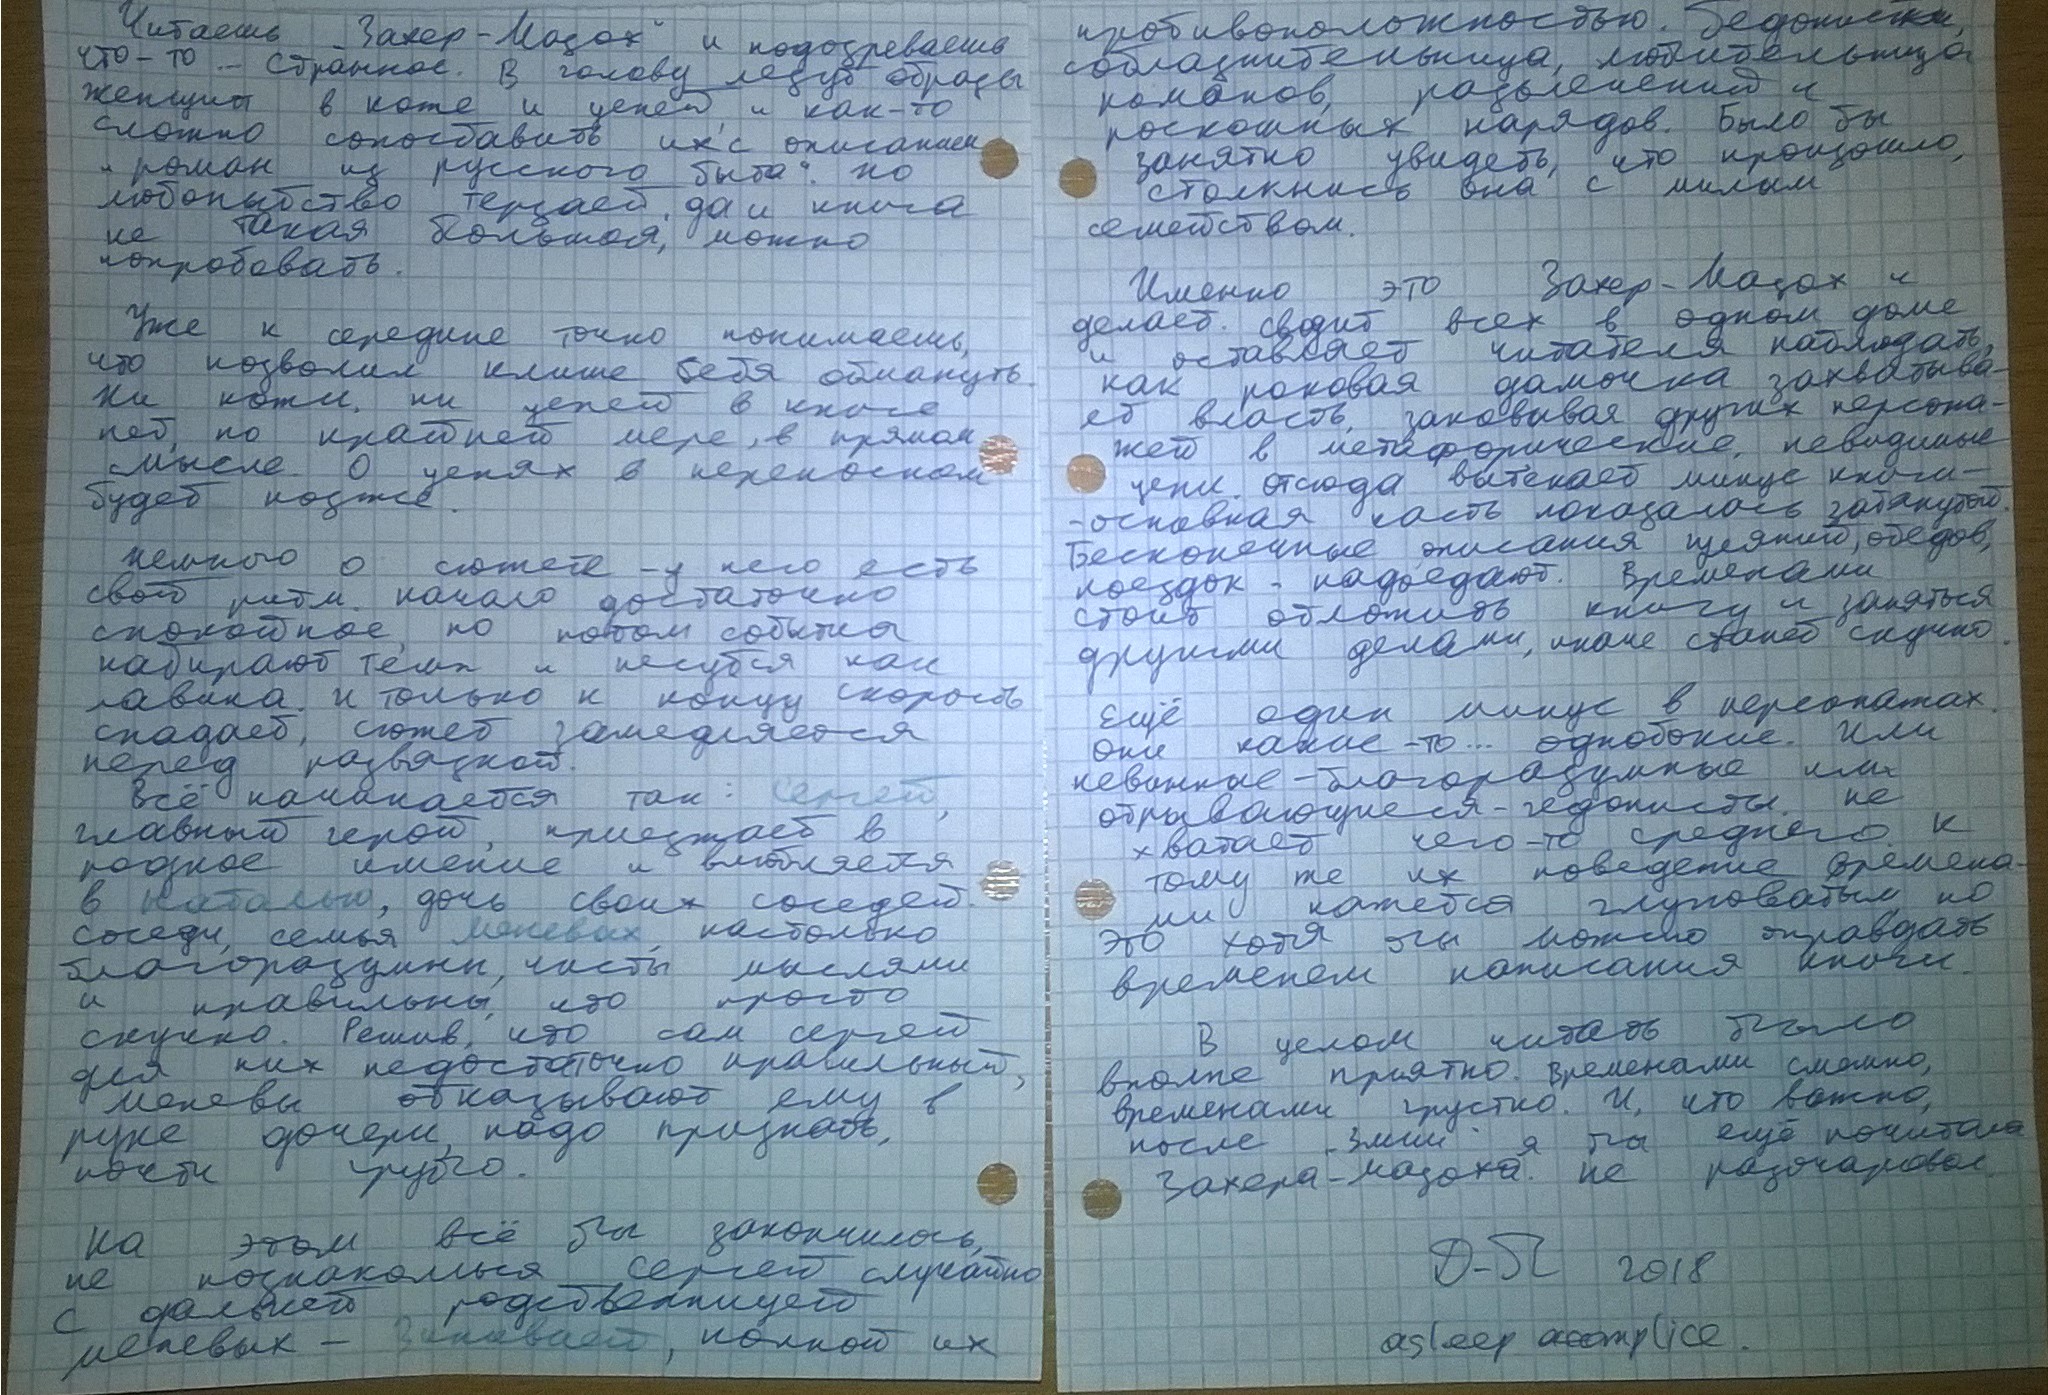 Читаешь "Захер-Мазох" и подозреваешь
что-то - странное. В голову лезут образы
женщин в коже и цепей, и как-то
сложно сопоставить их с описанием
"роман из русского быта". Но
любопытство терзает, да и книга
не такая большая, можно
попробовать.
Уже к середине точно понимаешь,
что позволил клише себя обмануть.
Ни кожи, ни цепей в книге
нет, по крайней мере, в прямом
смысле. О цепях в переносном
будет позже.
Немного о сюжете - у него есть
свой ритм. Начало достаточно
спокойное, но потом события
набирают темп и несутся как
лавина. И только к концу скорость
спадает, сюжет замедляется
перед развязкой.
Всё начинается так: Сергей,
главный герой, приезжает в
родное имение и влюбляется
в Наталью, дочь своих соседей.
Соседи, семья Меневых, настолько
благоразумны, чисты мыслями
и правильны, что просто
скучно. Решив, что сам Сергей
для них недостаточно правильный,
Меневы отказывают ему в
руке дочери, надо признать,
почти грубо.
На этом всё бы закончилось,
не познакомься Сергей случайно
с дальней родственницей
Меневых - Зиновией, полной их
противоположностью. Гедонистка,
соблазнительница, любительница
романов, развлечений и
роскошных нарядов. Было бы
занятно увидеть, что произошло,
столкнись она с милым
семейством.
Именно это Захер-Мазох и
делает. Сводит всех в одном доме
и оставляет читателя наблюдать,
как роковая дамочка захватыва-
ет власть, заковывая других персона-
жей в метафорические, невидимые
цепи. Отсюда вытекает минус книги -
- основная часть показалась затянутой.
Бесконечные описания гуляний, обедов,
поездок - надоедают. Временами
стоит отложить книгу и заняться
другими делами, иначе станет скучно.
Ещё один минус в персонажах.
Они какие-то... однобокие. Или
неважные-благоразумные или
отрывающиеся-гедонисты. Не
хватает чего-то среднего. К
тому же их поведение времена-
ми кажется глуповатым, но
это хотя бы можно оправдать
временем написания книги.
В целом читать было
вполне приятно. Временами смешно,
временами грустно. И, что важно,
после "Змии" я бы ещё почитала
Захера-Мазоха. Не разочаровал.
2018
asleep accomplice.